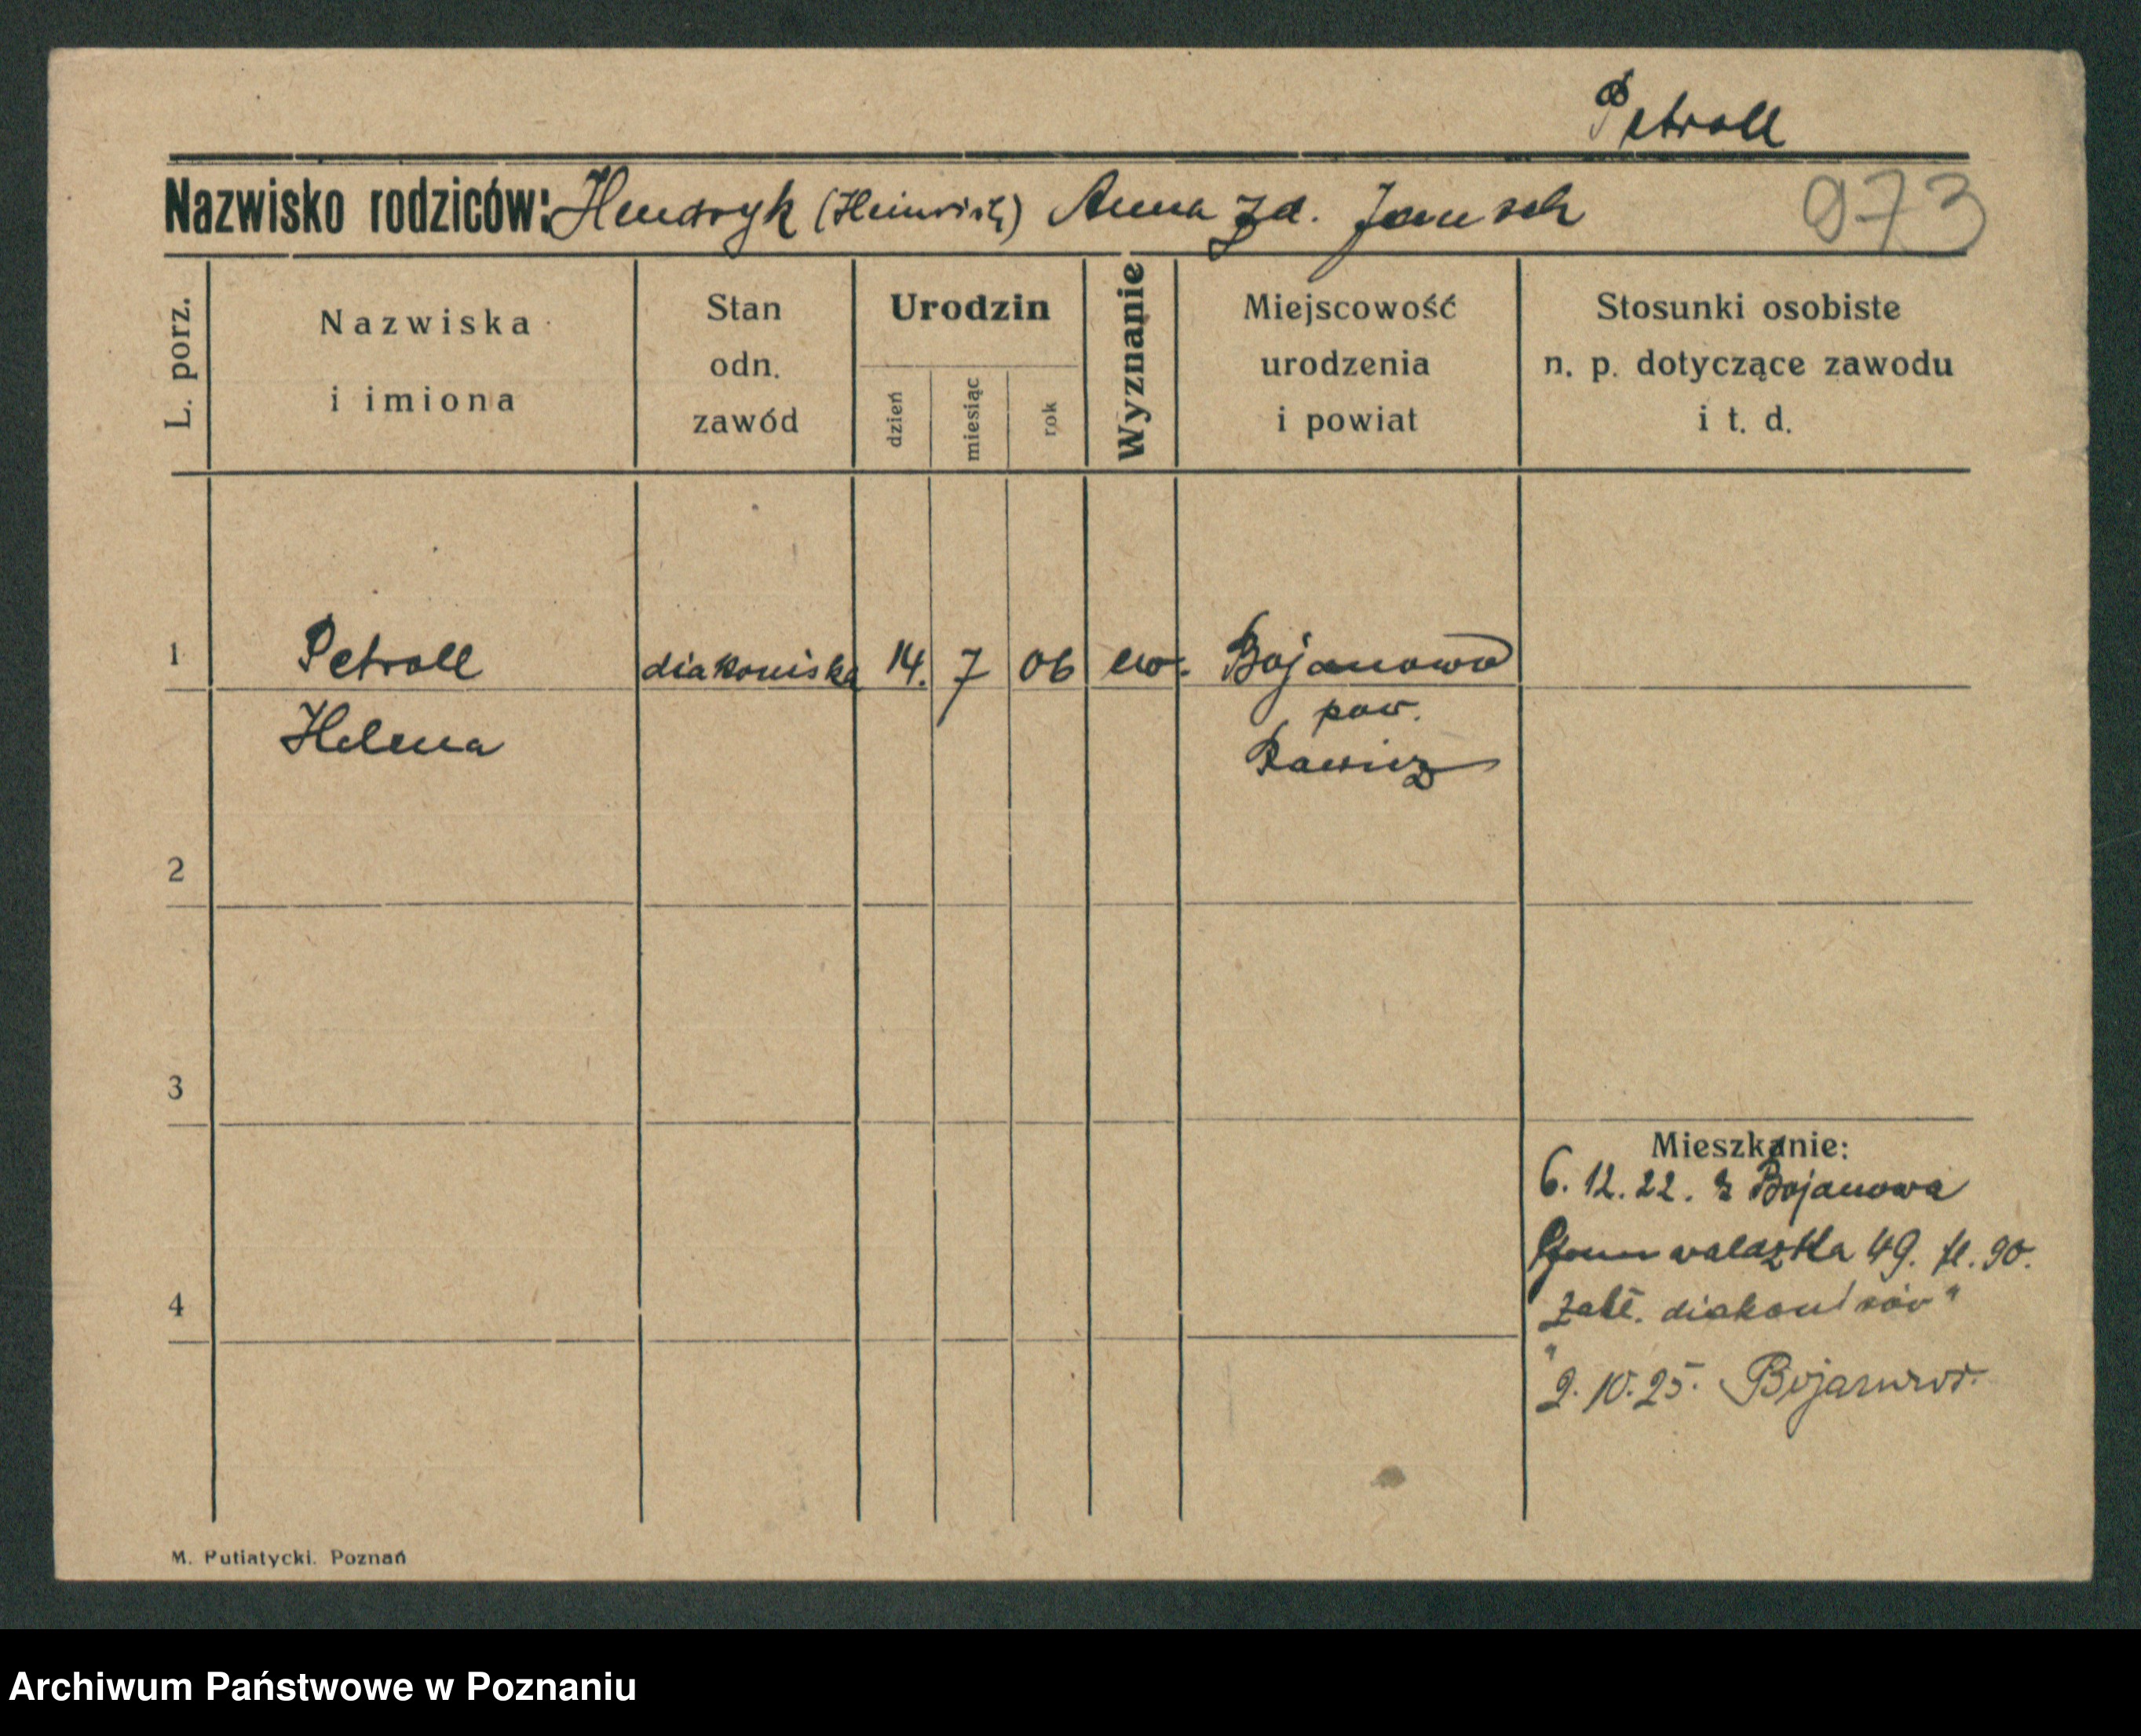 Petroll
Nazwisko rodziców: Hendryk (Heinrich) Anna zd. Jansch
973
L. porz.
Nazwiska
i imiona
Stan
odn.
zawód
Urodzin
dzień
miesiąc
rok
Wyznanie
Miejscowość
urodzenia
i powiat
Stosunki osobiste
n. p. dotyczące zawodu
i t. d.
1 Petroll diakoniska 14. 7 06 ew. Bojanowo
pow.
Helena Rawicz
2
3
Mieszkanie:
6. 12. 22. z Bojanowa
Grunwaldzka 49. fl. 90.
4
"2. 10. 25. Bojanowo.
M. Putiatycki. Poznań
Archiwum Państwowe w Poznaniu